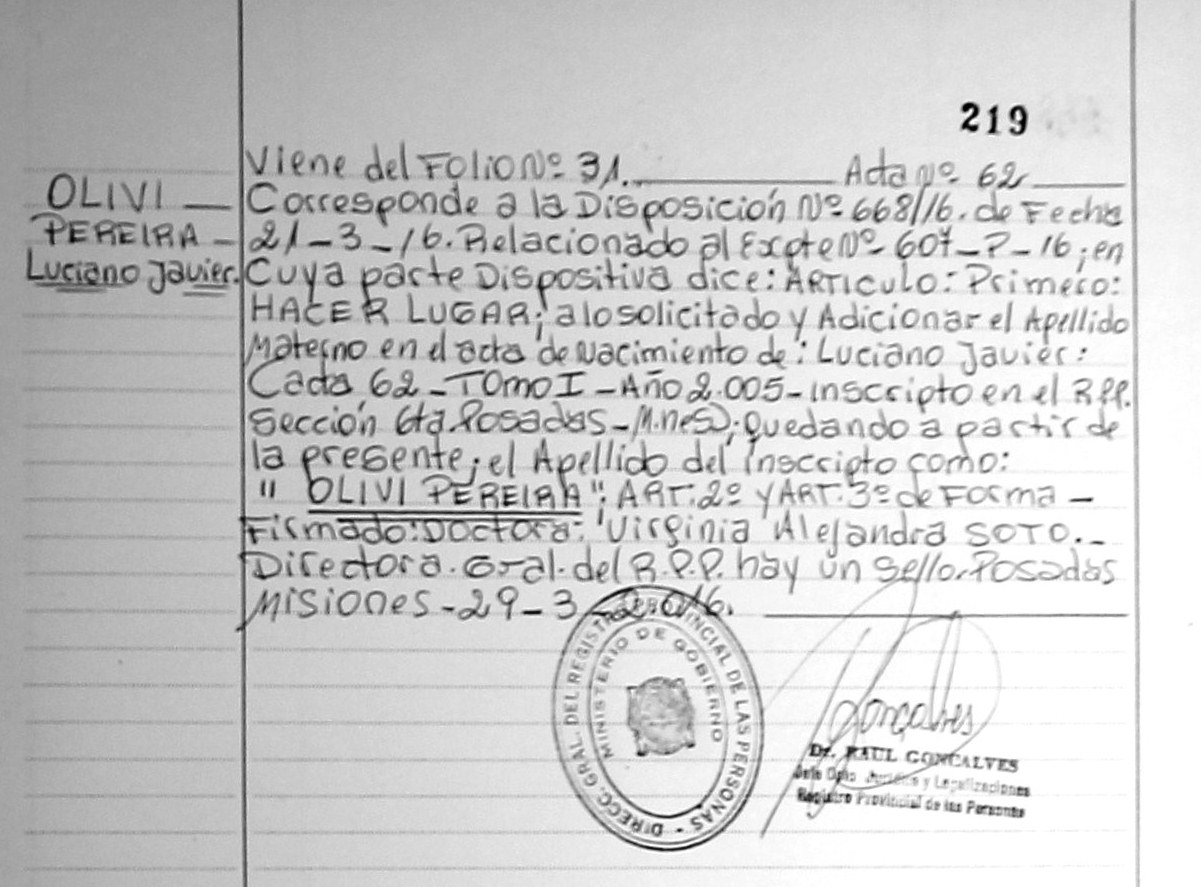 219
Viene del Folio Nº 31. Acta Nº 62
OLIVI
PEREIRA
Luciano Javier.
Corresponde a la Disposición Nº 668/16. de Fecha
21-3-16. Relacionado al Expte Nº 607-P-16; en
Cuya parte Dispositiva dice: ARTICULO: Primero:
HACER LUGAR; a lo solicitado y Adicionar el Apellido
Materno en el acta de Nacimiento de: Luciano Javier:
62-TOMO I-Año 2.005-inscripto en el R.P.P.
Sección 6ta Posadas-M.nes); Quedando a partir de
la presente; el Apellido del inscripto como:
"OLIVI PEREIRA"; ART: 2º Y ART: 3º de Forma-
Firmado: Doctora: Virginia Alejandra SOTO.-
Directora. Gral. del R.P.P. hay un sello. Posadas
Misiones-29-3-2.016.
DIRECC. GRAL. DEL REGISTRO PROVINCIAL DE LAS PERSONAS
MINISTERIO DE GOBIERNO
Gonçalves
Dr. RAUL GONCALVES
Jefe Dpto. Jurídico y Legalizaciones
Registro Provincial de las Personas